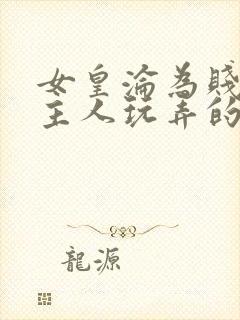 女皇淪為賤
主人玩弄的
龍源